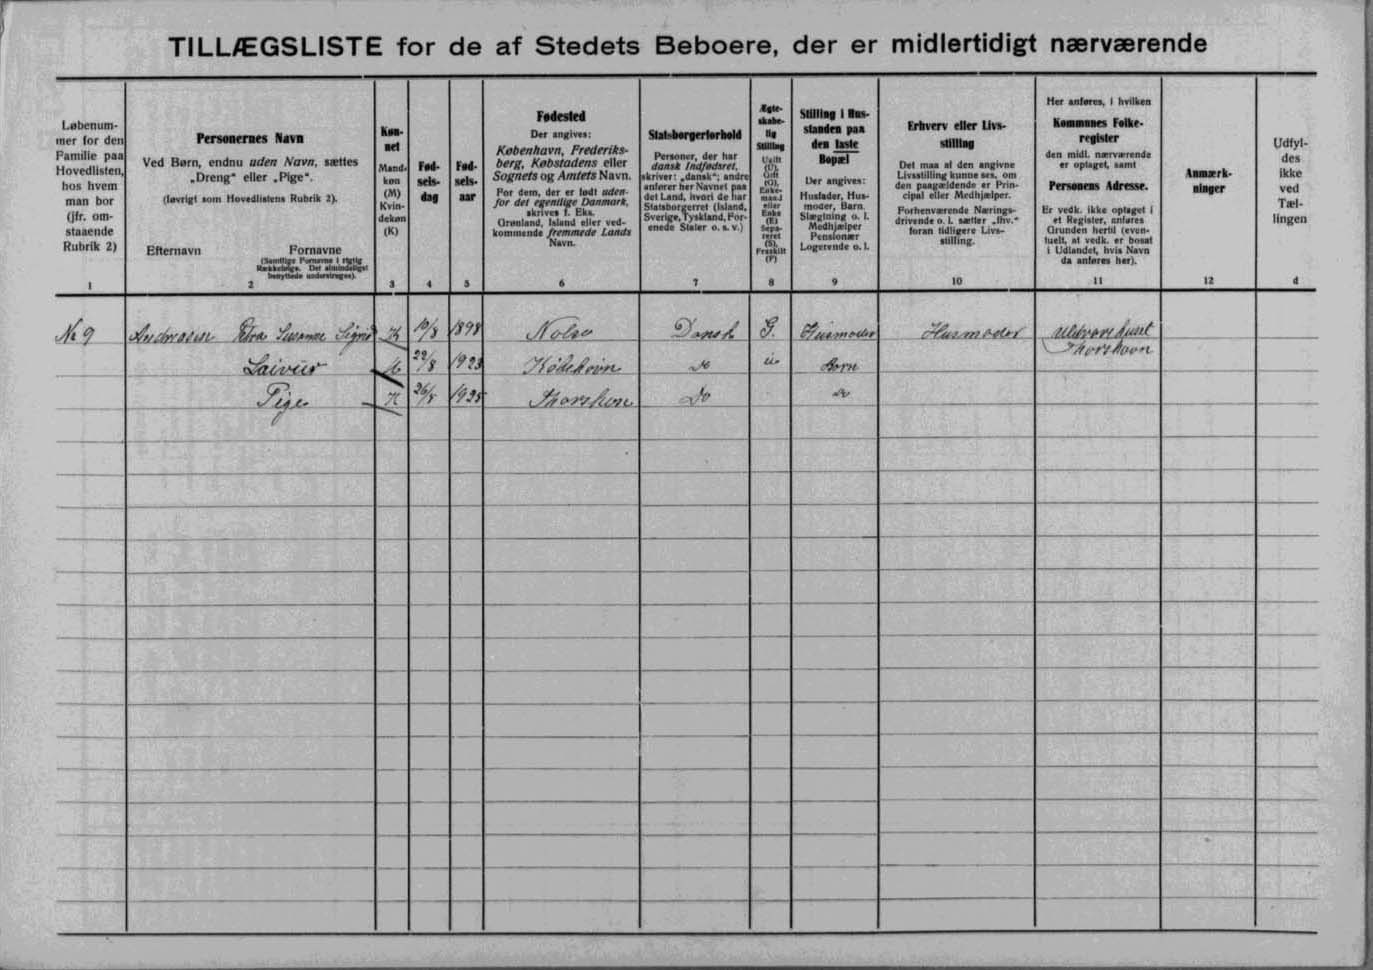 TILLÆGSLISTE for de af Stedets Beboere, der er midlertidigt nærværende
Løbenum-
mer for den
Familie paa
Hovedlisten,
hos hvem
man bor
(jfr. om-
staaende
Rubrik 2)
1
Personernes Navn
Ved Børn, endnu uden Navn, sættes
„Dreng“ eller „Pige“.
(Iøvrigt som Hovedlistens Rubrik 2).
Efternavn Fornavne
(Samtlige Fornavne i rigtig
Rækkefølge. Det almindeligst
benyttede understreges).
2
Køn-
net
Mand-
køn
(M)
Kvin-
dekøn
(K)
3
Fød-
sels-
dag
4
Fød-
sels-
aar
5
Fødested
Der angives:
København, Frederiks-
berg, Købstadens eller
Sognets og Amtets Navn.
For dem, der er født uden-
for det egentlige Danmark,
skrives f. Eks.
Grønland, Island eller ved-
kommende fremmede Lands
Navn.
6
Statsborgerforhold
Personer, der har
dansk Indfødsret,
skriver: „dansk“; andre
anfører her Navnet paa
det Land, hvori de har
Statsborgerret (Island,
Sverige, Tyskland, For-
enede Stater o. s. v.)
7
Ægte-
skabe-
lig
Stilling
Ugift
(U),
Gift
(G),
Enke-
mand
eller
Enke
(E)
Sepa-
reret
(S),
Fraskilt
(F)
8
Stilling i Hus-
standen paa
den faste
Bopæl
Der angives:
Husfader, Hus-
moder, Barn.
Slægtning o. l.
Medhjælper
Pensionær
Logerende o. l.
9
Erhverv eller Livs-
stilling
Det maa af den angivne
Livsstilling kunne ses, om
den paagældende er Prin-
cipal eller Medhjælper.
Forhenværende Nærings-
drivende o. l. sætter „fhv.“
foran tidligere Livs-
stilling.
10
Her anføres, i hvilken
Kommunes Folke-
register
den midl. nærværende
er optaget, samt
Personens Adresse.
Er vedk. ikke optaget i
et Register, anføres
Grunden hertil (even-
tuelt, at vedk. er bosat
i Udlandet, hvis Navn
da anføres her).
11
Anmærk-
ninger
12
Udfyl-
des
ikke
ved
Tæl-
lingen
d
No 9 Andreasen Petra Susanne Sigrid K 10/8 1898 Nolsø Dansk G. Husmoder Husmoder
Thorshavn
22/8 1923 Do U Barn
Pige K 26/8 1925 Thorshavn Do Do